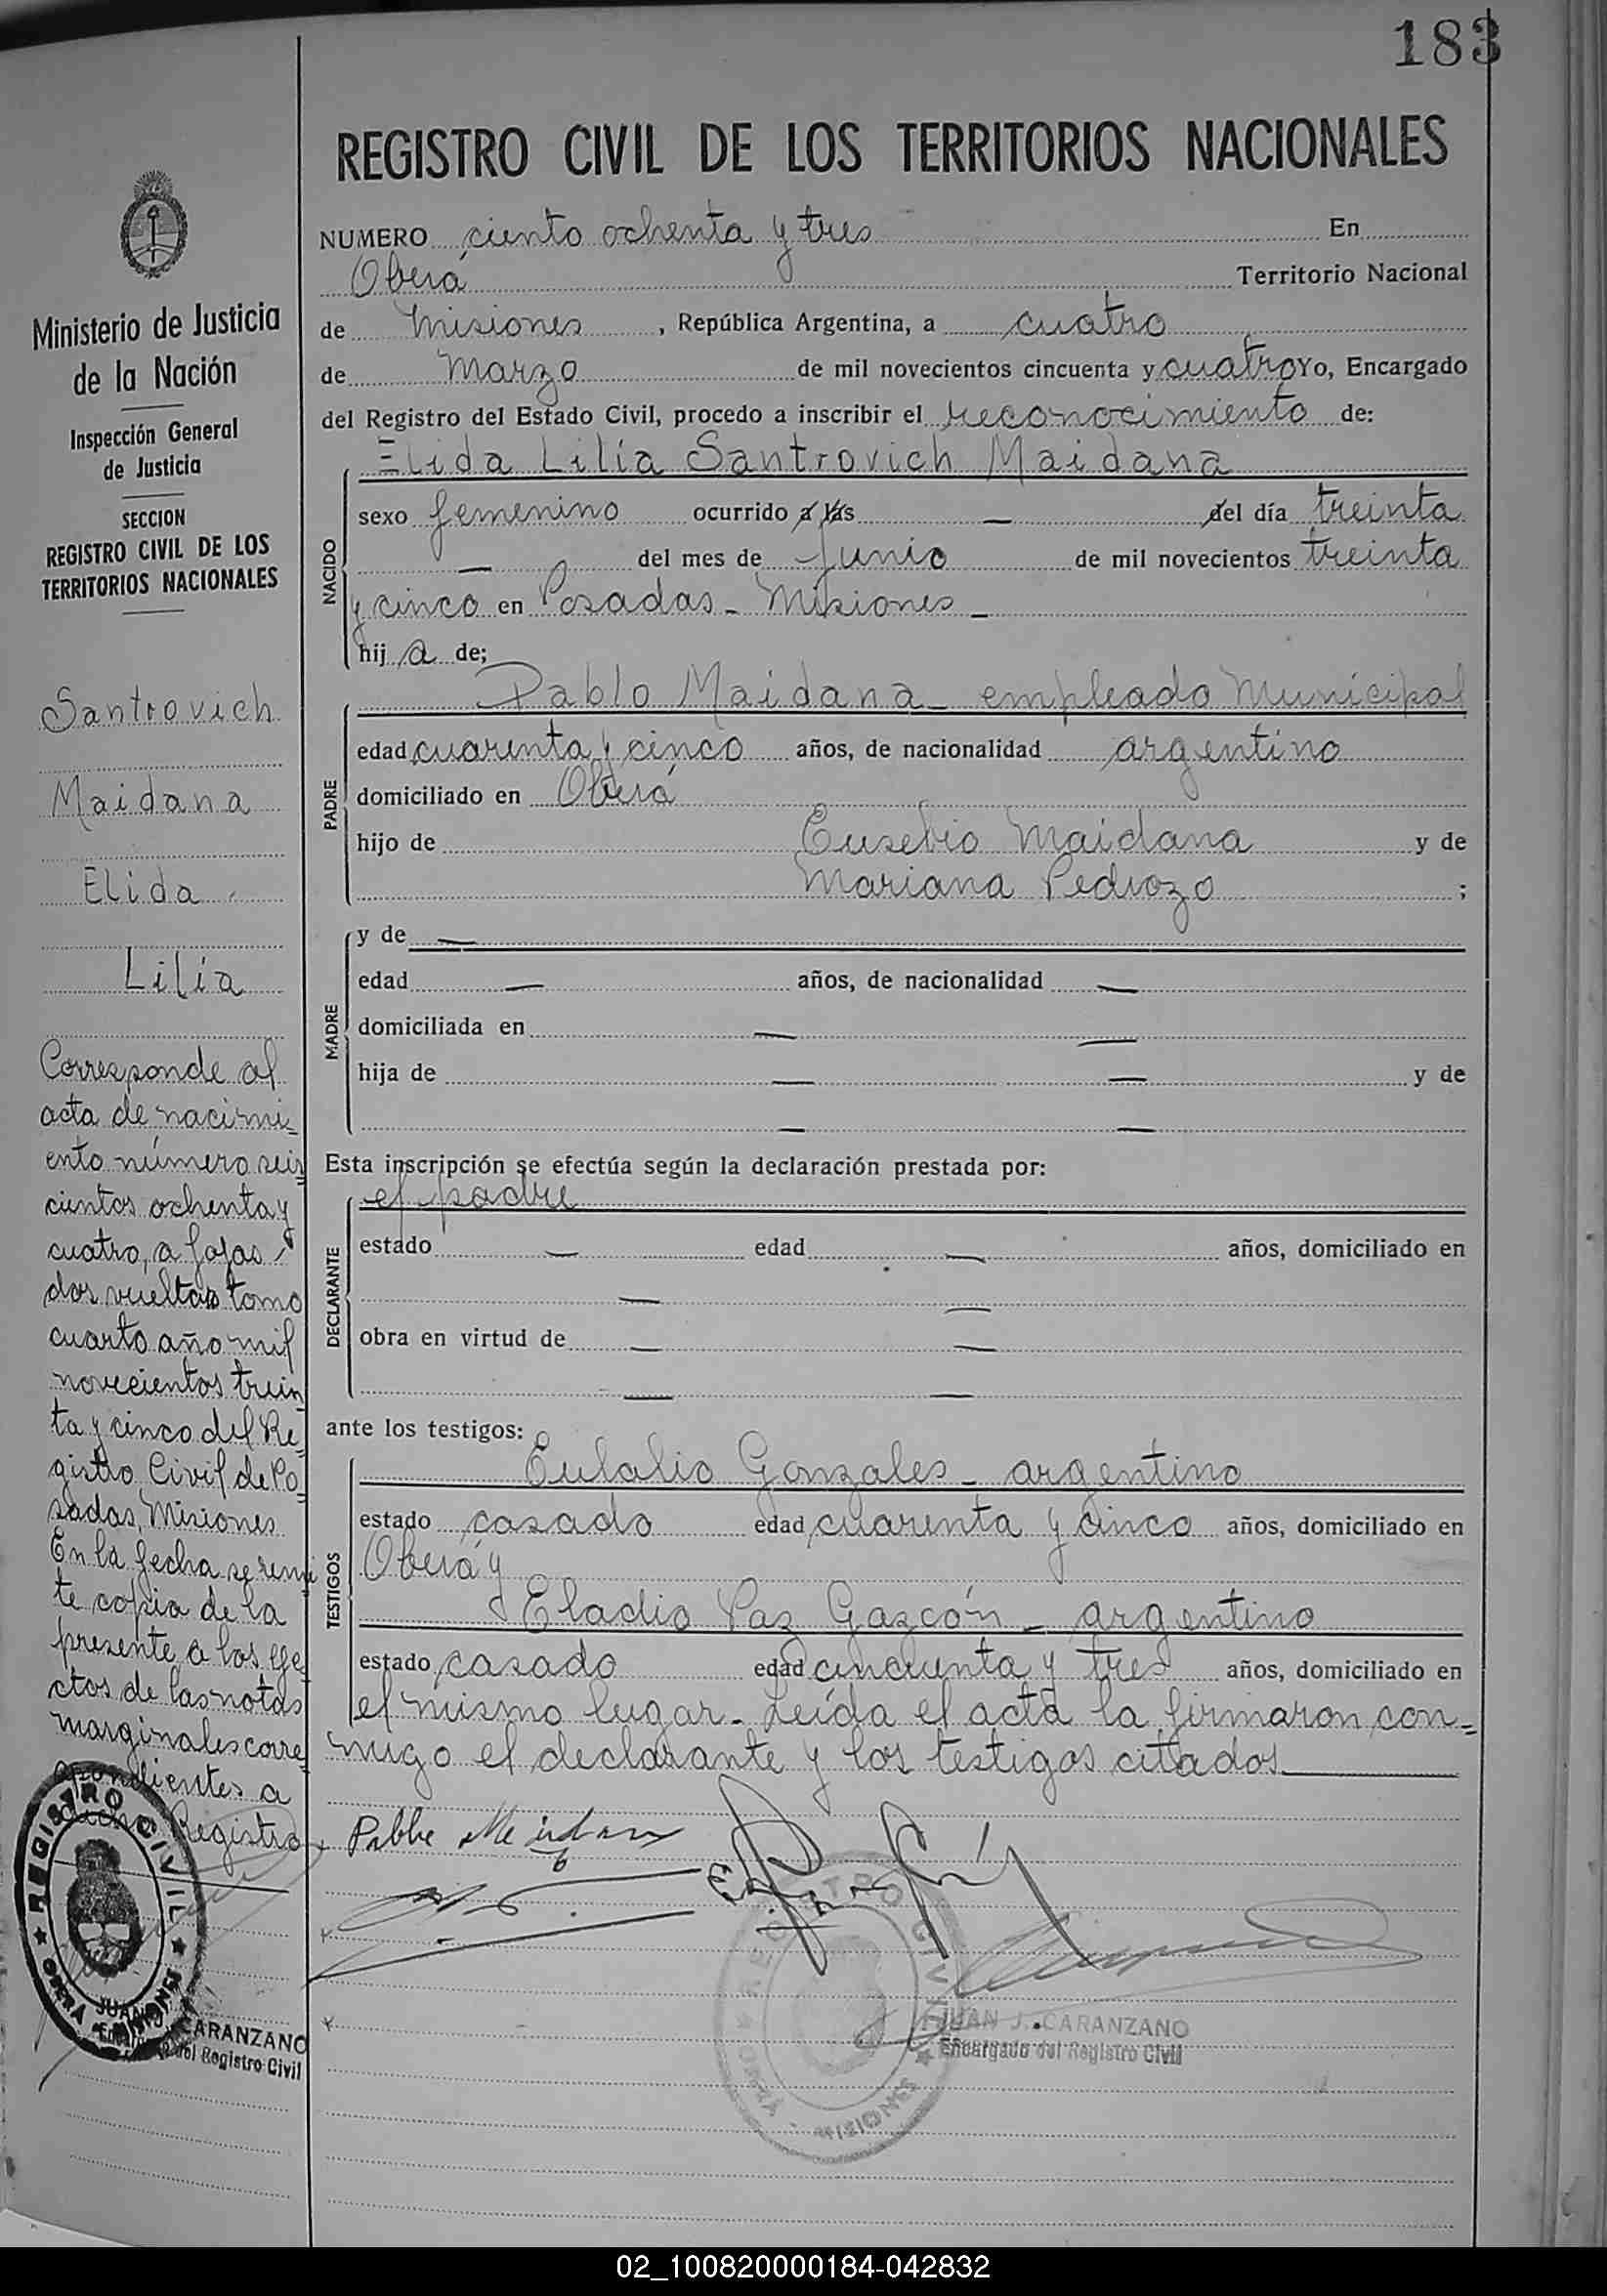 183
REGISTRO CIVIL DE LOS TERRITORIOS NACIONALES
NUMERO ciento ochenta y tres En
Oberá Territorio Nacional
de Misiones, República Argentina, a cuatro
de marzo de mil novecientos cincuenta y cuatro Yo, Encargado
del Registro del Estado Civil, procedo a inscribir el reconocimiento de:
Elida Lilia Santrovich Maidana
NACIDO
sexo femenino ocurrido a las — del día treinta
— del mes de Junio de mil novecientos treinta
y cinco en Posadas - Misiones -
hij a de;
PADRE
Pablo Maidana - empleado Municipal
edad cuarenta y cinco años, de nacionalidad argentino
domiciliado en Oberá
hijo de Eusebio Maidana y de
Mariana Pedrozo ;
MADRE
y de —
edad — años, de nacionalidad —
domiciliada en — —
hija de — — y de
— —
Esta inscripción se efectúa según la declaración prestada por:
DECLARANTE
el padre
estado — edad — años, domiciliado en
— —
obra en virtud de — —
— —
ante los testigos:
TESTIGOS
Eulalio Gonzales - argentino
estado casado edad cuarenta y cinco años, domiciliado en
Oberá y
Eladio Paz Gascón - argentino
estado casado edad cincuenta y tres años, domiciliado en
el mismo lugar - Leída el acta la firmaron con=
migo el declarante y los testigos citados
JUAN J. CARANZANO
Encargado del Registro Civil
REGISTRO CIVIL
OBERÁ - MISIONES
Ministerio de Justicia
de la Nación
Inspección General
de Justicia
SECCION
REGISTRO CIVIL DE LOS
TERRITORIOS NACIONALES
Santrovich
Maidana
Elida
Lilia
Corresponde al
acta de nacimi=
ento número seis
cientos ochenta y
cuatro, a fojas
dos vuelta tomo
cuarto año mil
novecientos trein
ta y cinco del Re=
gistro Civil de Po=
sadas, Misiones
En la fecha se remi
te copia de la
presente a los efe
ctos de las notas
marginales corre
spondientes a
dicho Registro
REGISTRO CIVIL
OBERÁ MISIONES
JUAN J. CARANZANO
Encargado del Registro Civil
02_100820000184-042832